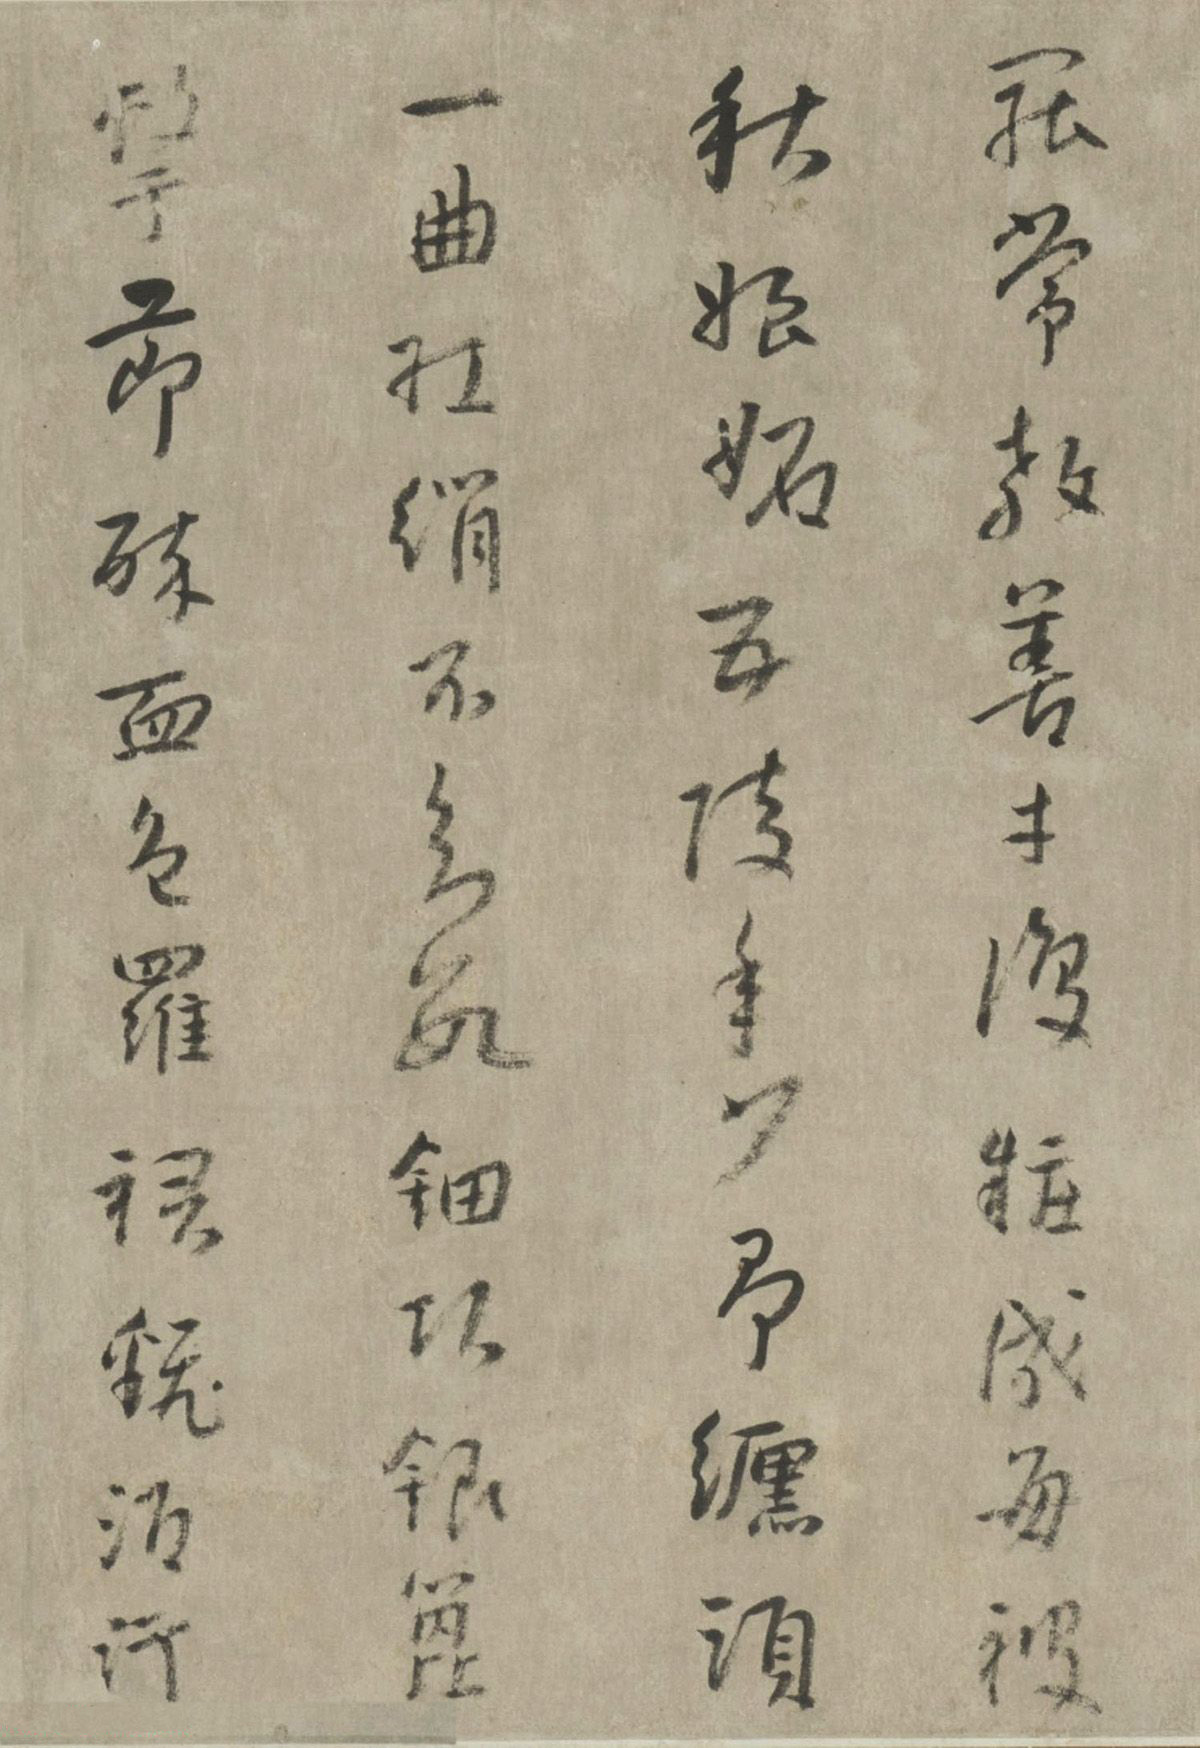 罷常教善才服粧成每被
秋娘妬五陵年少爭纏頭
一曲紅綃不知數鈿頭銀篦
擊節碎血色羅裙翻酒汙